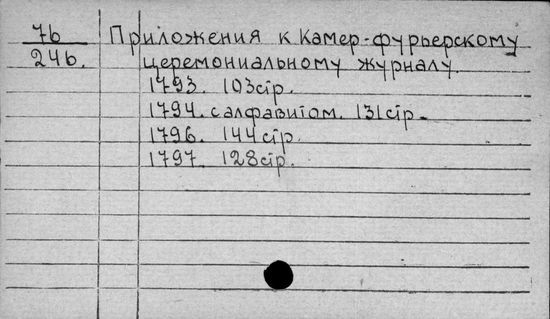 76 Приложения к Камер-фурьерскому
246. церемониальному журналу.
1793. 103стр.
1794. салфавитом. 131стр.
1796. 144стр.
1797. 128стр.